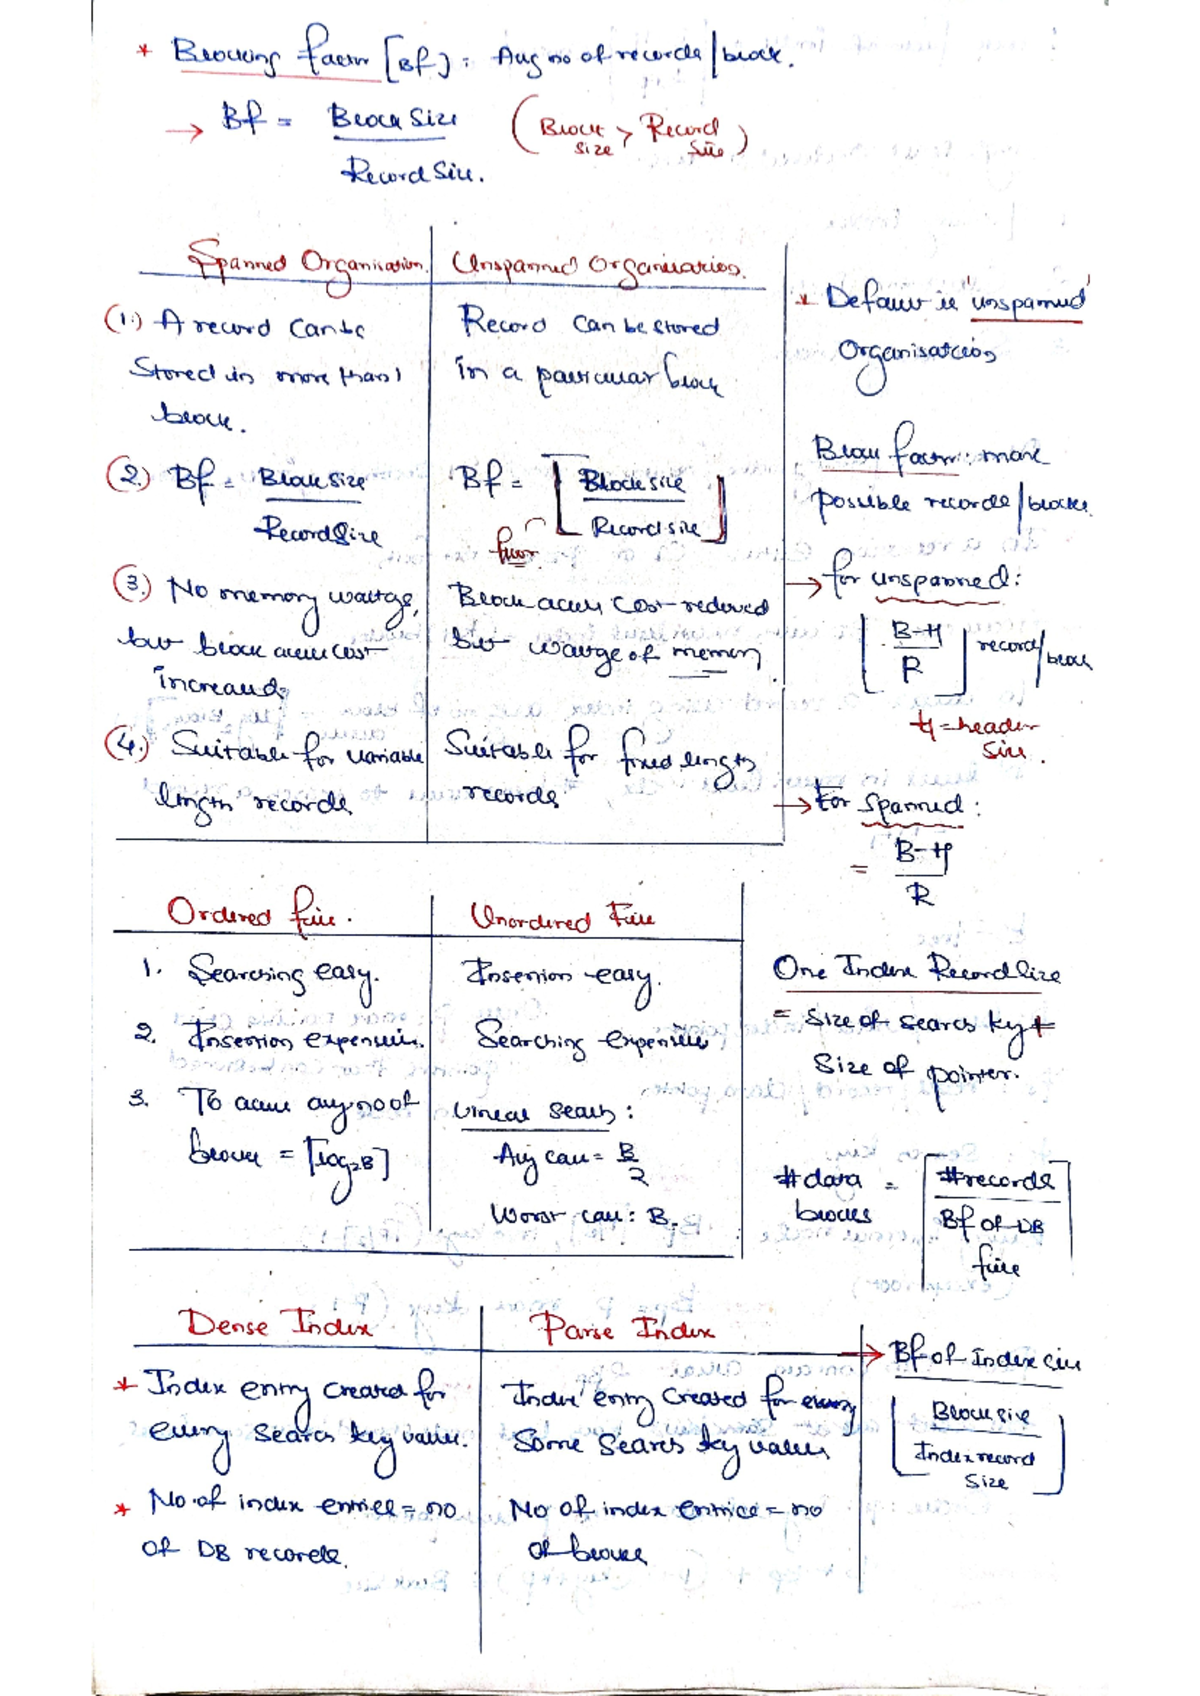 * Blocking factor [Bf] : Avg no of records/block.
→ Bf = Block Size / Record Size. (Block size > Record Size)
Spanned Organisation | Unspanned Organisation.
(1.) A record can be | Record can be stored
stored in more than 1 | in a particular block
block.
(2.) Bf = Block size / Record Size | Bf = ⌊Block size / Record size⌋
floor
(3.) No memory wastge, | Block access cost reduced
but block access cost | but wastge of memory.
increased.
(4.) Suitable for variable | Suitable for fixed length
length records | records
* Default is "unspanned"
Organisation
Block factor : max
possible records/blocks
→ for unspanned :
⌊B-H / R⌋ record/block
H = header
size.
→ For Spanned :
= B-H / R
Ordered file. | Unordered File
1. Searching easy. | Insertion easy.
2. Insertion expensive. | Searching expensive
3. To access avg no of | Linear search :
blocks = ⌈log₂B⌉ | Avg case = B/2
Worst case : B.
One Index Record Size
= Size of search key +
Size of pointer.
#data blocks = ⌈#records / Bf of DB file⌉
Dense Index | Parse Index
* Index entry created for | Index entry created for every
every search key value. | some search key values
* No. of index entries = no | No of index entries = no
of DB records. | of blocks
→ Bf of index file
⌊Block size / Index record size⌋